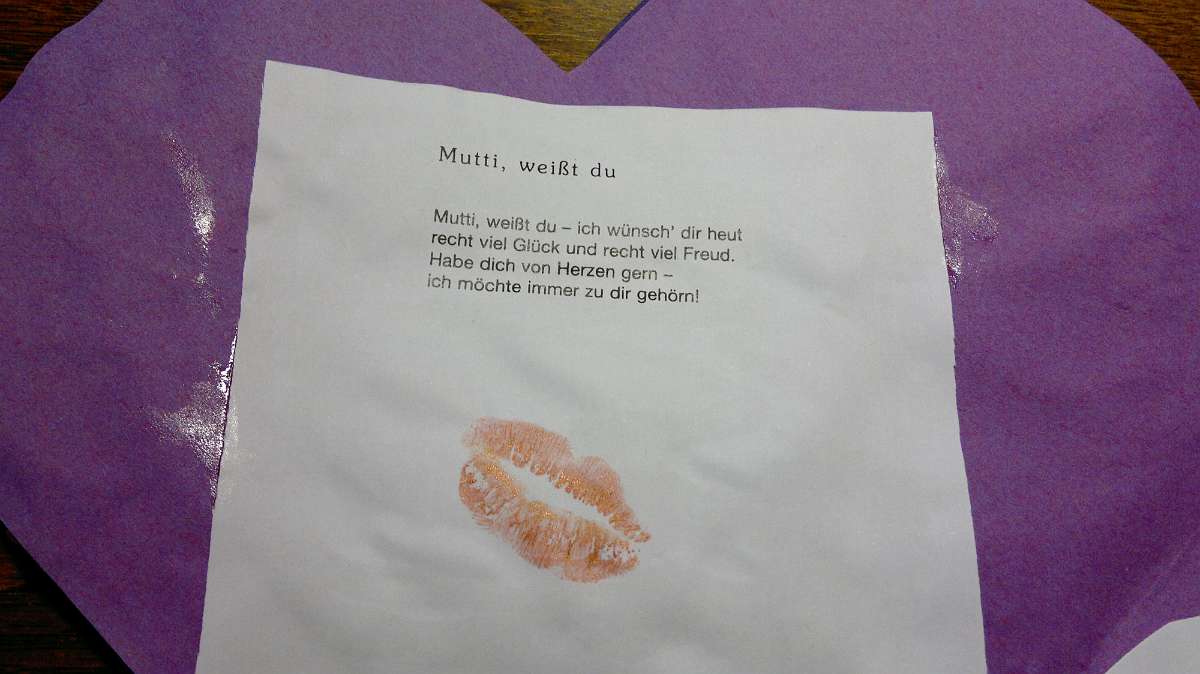 Mutti, weißt du
Mutti, weißt du – ich wünsch' dir heut
recht viel Glück und recht viel Freud.
Habe dich von Herzen gern –
ich möchte immer zu dir gehörn!